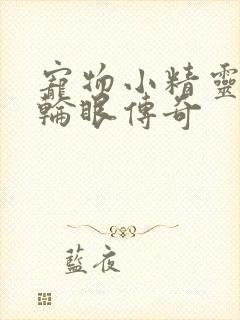 寵物小精靈
輪眼傳奇
藍夜